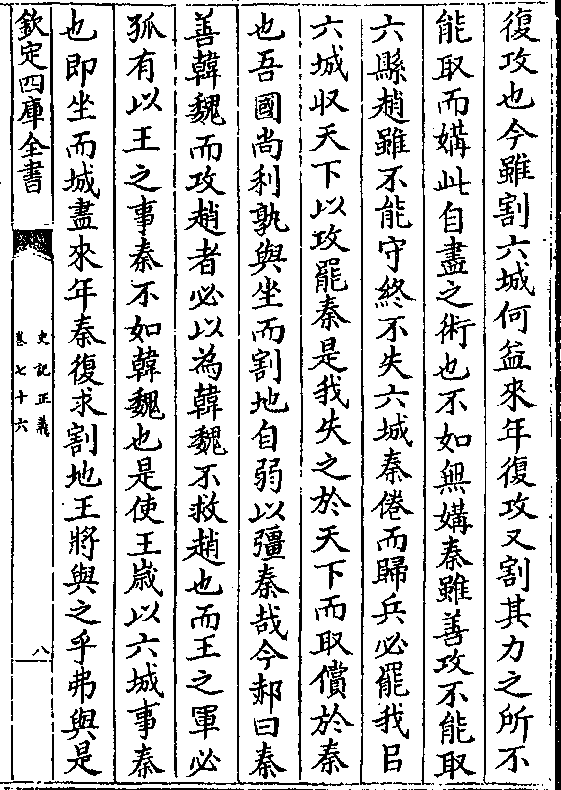 復攻也今雖割六城何益來年復攻又割其力之所不
能取而媾此自盡之術也不如無媾秦雖善攻不能取
六縣趙雖不能守終不失六城秦倦而歸兵必罷我㠯
六城收天下以攻罷秦是我失之於天下而取償於秦
也吾國尚利孰與坐而割地自弱以彊秦哉今郝曰秦
善韓魏而攻趙者必以為韓魏不救趙也而王之軍必
孤有以王之事秦不如韓魏也是使王歳以六城事秦
也即坐而城盡來年秦復求割地王將與之乎弗與是
欽定四庫全書
史記正義
卷七十六
八